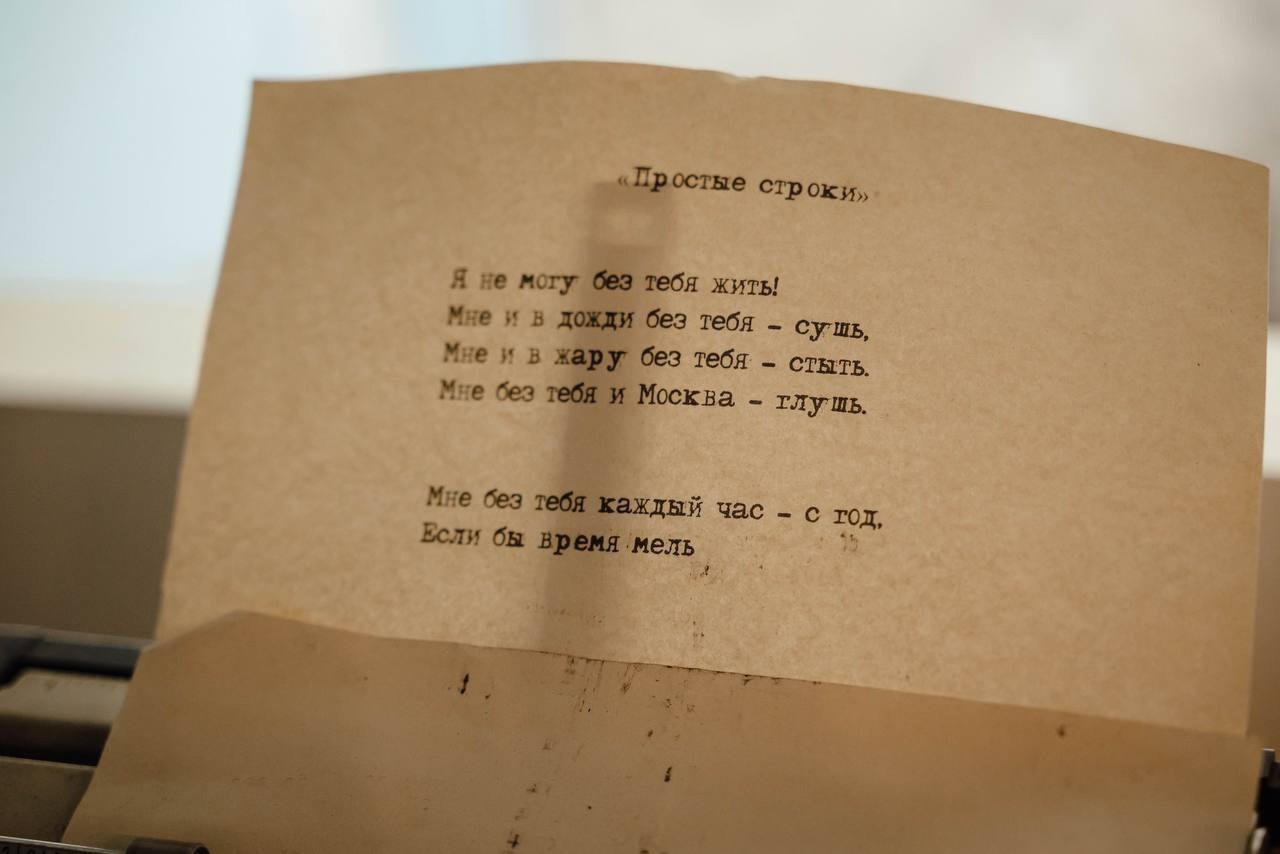 «Простые строки»
Я не могу без тебя жить!
Мне и в дожди без тебя – сушь,
Мне и в жару без тебя – стыть.
Мне без тебя и Москва – глушь.
Мне без тебя каждый час – с год,
Если бы время мель